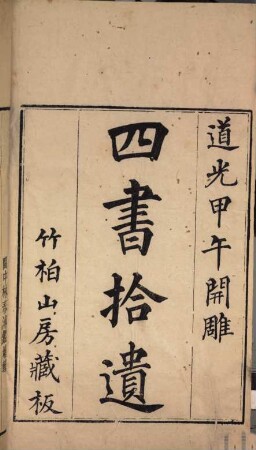 道光甲午開雕
四書拾遺
竹柏山房藏板